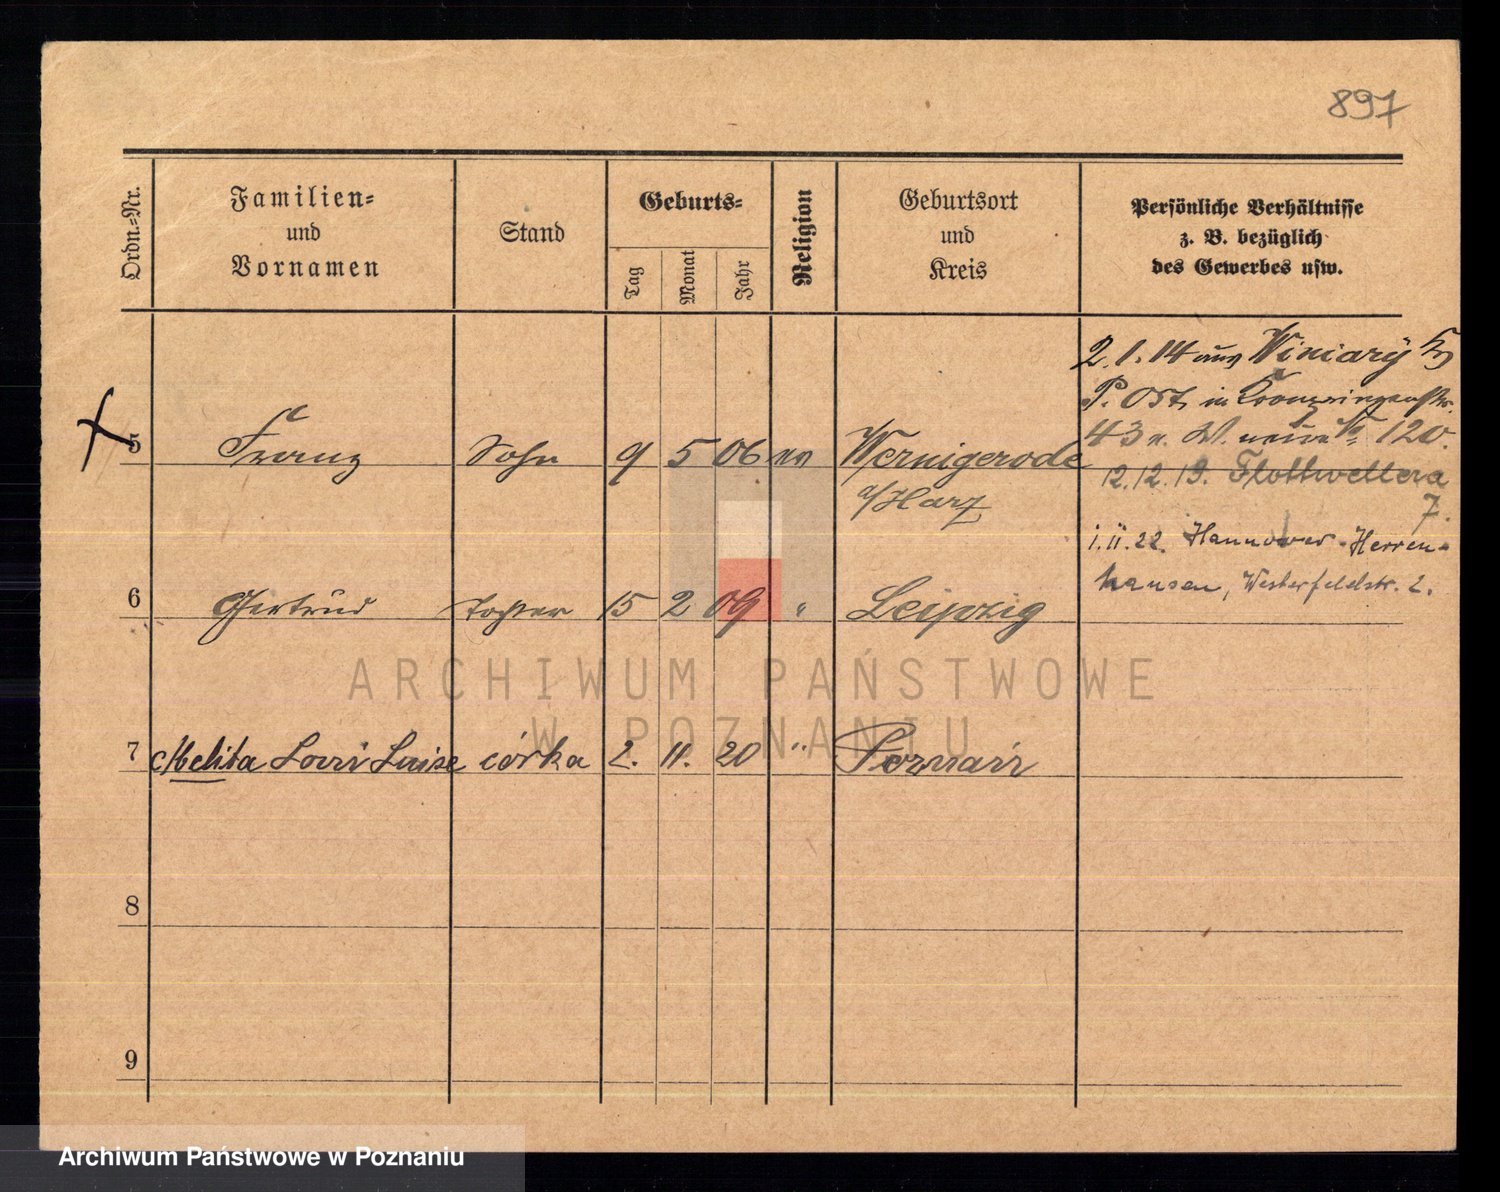 897
Ordn.-Nr.
Familien-
und
Vornamen
Stand
Geburts-
Tag
Monat
Jahr
Religion
Geburtsort
und
Kreis
Persönliche Verhältnisse
z. B. bezüglich
des Gewerbes usw.
2. 1. 14 aus Winiary
P. Ost, in Kronprinzenstr.
43 120.
12.12.19. Flottwellstra
7.
5 Franz Sohn 9 5 06 ev Wernigerode
a/Harz
1.11.22. Hannover-Herren-
hausen, Westerfeldstr. 2.
6 Gertrud Tochter 15 2 09 " Leipzig
7 Melita Luise córka 2. 11. 20 " Poznań
8
9
ARCHIWUM PAŃSTWOWE
W POZNANIU
Archiwum Państwowe w Poznaniu